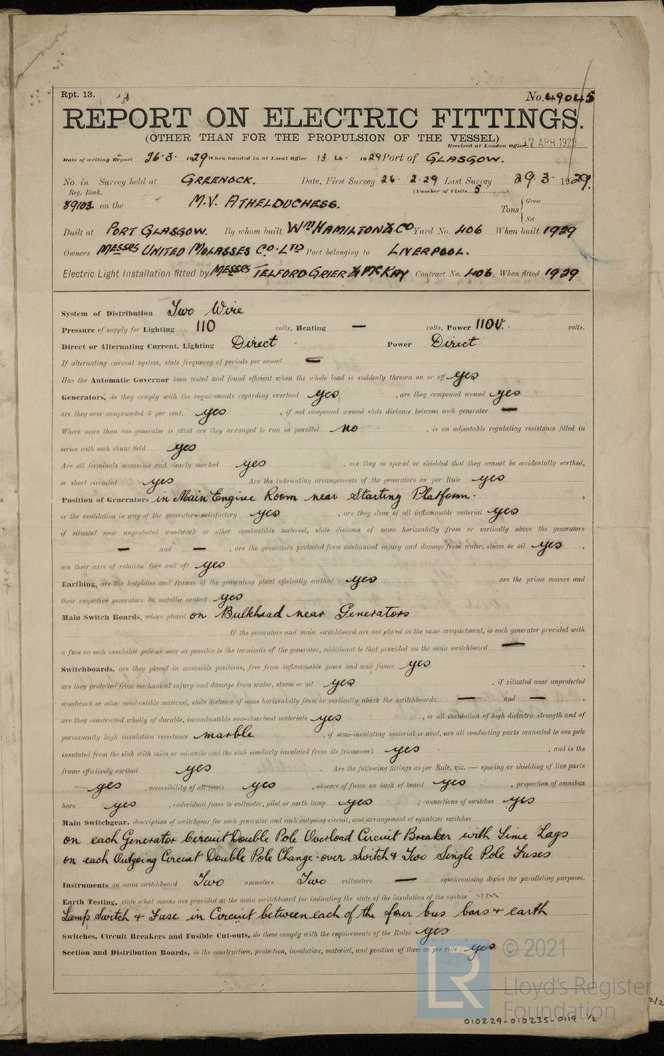 Rpt. 13.
No. 49045
REPORT ON ELECTRIC FITTINGS.
(OTHER THAN FOR THE PROPULSION OF THE VESSEL)
Received at London Office 17 APR 1929
Date of writing Report 26.3.1929 When handed in at Local Office 13 1929 Port of GLASGOW.
No. in Survey held at GREENOCK. Date, First Survey 26.2.29 Last Survey 29.3.1929.
Reg. Book. (Number of Visits 5)
89103 on the M.V. ATHELDUCHESS. Tons { Gross
Net
Built at PORT GLASGOW. By whom built Wm HAMILTON & CO Yard No. 406 When built 1929
Owners MESSRS UNITED MOLASSES CO. LTD Port belonging to LIVERPOOL.
Electric Light Installation fitted by MESSRS TELFORD GRIER & McKAY Contract No. 406. When fitted 1929
System of Distribution Two Wire
Pressure of supply for Lighting 110 volts, Heating — volts, Power 110V. volts.
Direct or Alternating Current, Lighting Direct Power Direct
If alternating current system, state frequency of periods per second —
Has the Automatic Governor been tested and found efficient when the whole load is suddenly thrown on or off yes
Generators, do they comply with the requirements regarding overload yes, are they compound wound yes
are they over compounded 5 per cent. yes, if not compound wound state distance between each generator —
Where more than one generator is fitted are they arranged to run in parallel no, is an adjustable regulating resistance fitted in
series with each shunt field yes
Are all terminals accessible and clearly marked yes, are they so spaced or shielded that they cannot be accidentally earthed,
or short circuited yes Are the lubricating arrangements of the generators as per Rule yes
Position of Generators in Main Engine Room near Starting Platform.
is the ventilation in way of the generators satisfactory yes, are they clear of all inflammable material yes
if situated near unprotected woodwork or other combustible material, state distance of same horizontally from or vertically above the generators
— and —, are the generators protected from mechanical injury and damage from water, steam or oil yes,
are their axes of rotation fore and aft yes
Earthing, are the bedplates and frames of the generating plant efficiently earthed yes are the prime movers and
their respective generators in metallic contact yes
Main Switch Boards, where placed on Bulkhead near Generators
If the generators and main switchboard are not placed in the same compartment, is each generator provided with
a fuse on each insulated pole as near as possible to the terminals of the generator, additional to that provided on the main switchboard —
Switchboards, are they placed in accessible positions, free from inflammable gases and acid fumes yes,
are they protected from mechanical injury and damage from water, steam or oil yes, if situated near unprotected
woodwork or other combustible material, state distance of same horizontally from or vertically above the switchboards — and —,
are they constructed wholly of durable, incombustible non-absorbent materials yes, is all insulation of high dielectric strength and of
permanently high insulation resistance marble, if semi-insulating material is used, are all conducting parts connected to one pole
insulated from the slab with mica or micanite and the slab similarly insulated from its framework yes, and is the
frame effectively earthed yes Are the following fittings as per Rule, viz.:— spacing or shielding of live parts
yes, accessibility of all parts yes, absence of fuses on back of board yes, proportion of omnibus
bars yes, individual fuses to voltmeter, pilot or earth lamp yes, connections of switches yes
Main Switchgear, description of switchgear for each generator and each outgoing circuit, and arrangement of equalizer switches
on each Generator Circuit Double Pole Overload Circuit Breaker with Time Lags
on each Outgoing Circuit Double Pole Change-over Switch & Two Single Pole Fuses
Instruments on main switchboard Two ammeters Two voltmeters — synchronising device for paralleling purposes.
Earth Testing, state what means are provided at the main switchboard for indicating the state of the insulation of the system
Lamp Switch & Fuse in Circuit between each of the four bus bars & earth
Switches, Circuit Breakers and Fusible Cut-outs, do these comply with the requirements of the Rules yes
Section and Distribution Boards, is the construction, protection, insulation, material, and position of these as per rule yes
© 2021
LR
Lloyd's Register
Foundation
010229-010235-0119 1/2